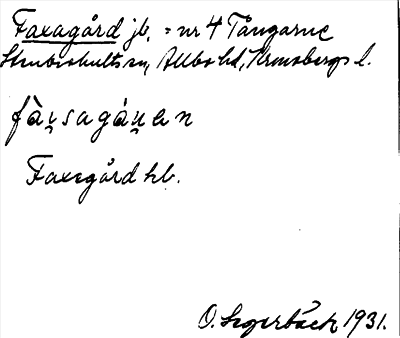 Faxagård jb. = nr 4 Tångarne
Stenbrohults sn, Allbo hd, Kronobergs l.
fàι̯sagáu̯an
Faxegård kb.
O. Segerbäck 1931.